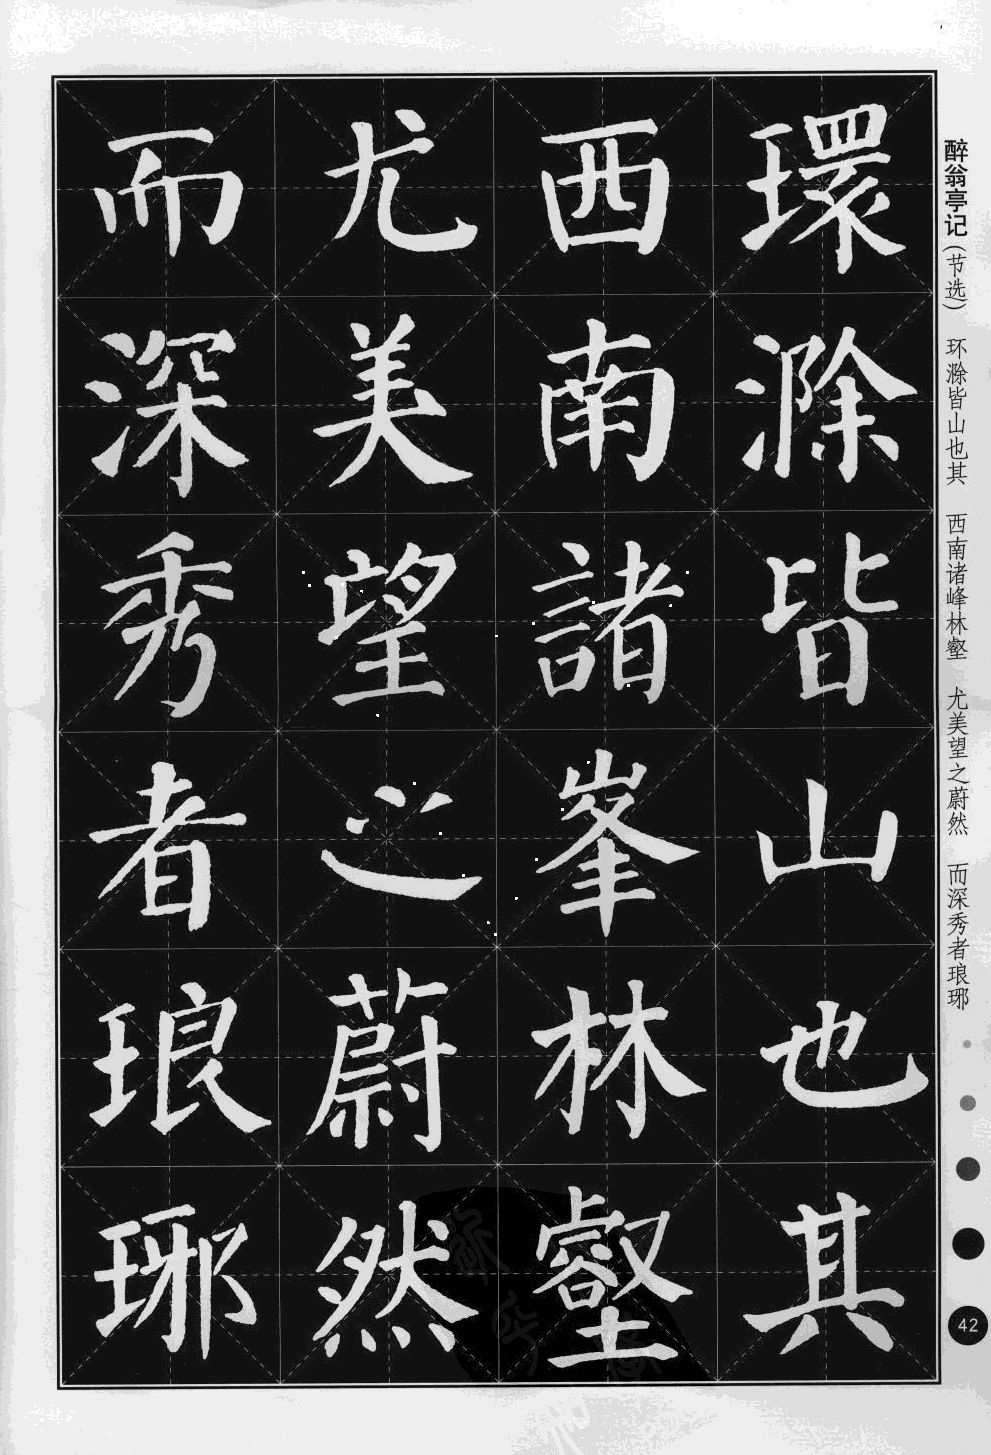 醉翁亭记(节选) 环滁皆山也其 西南诸峰林壑 尤美望之蔚然 而深秀者琅琊
環滁皆山也其
西南諸峯林壑
尤美望之蔚然
而深秀者琅琊
42